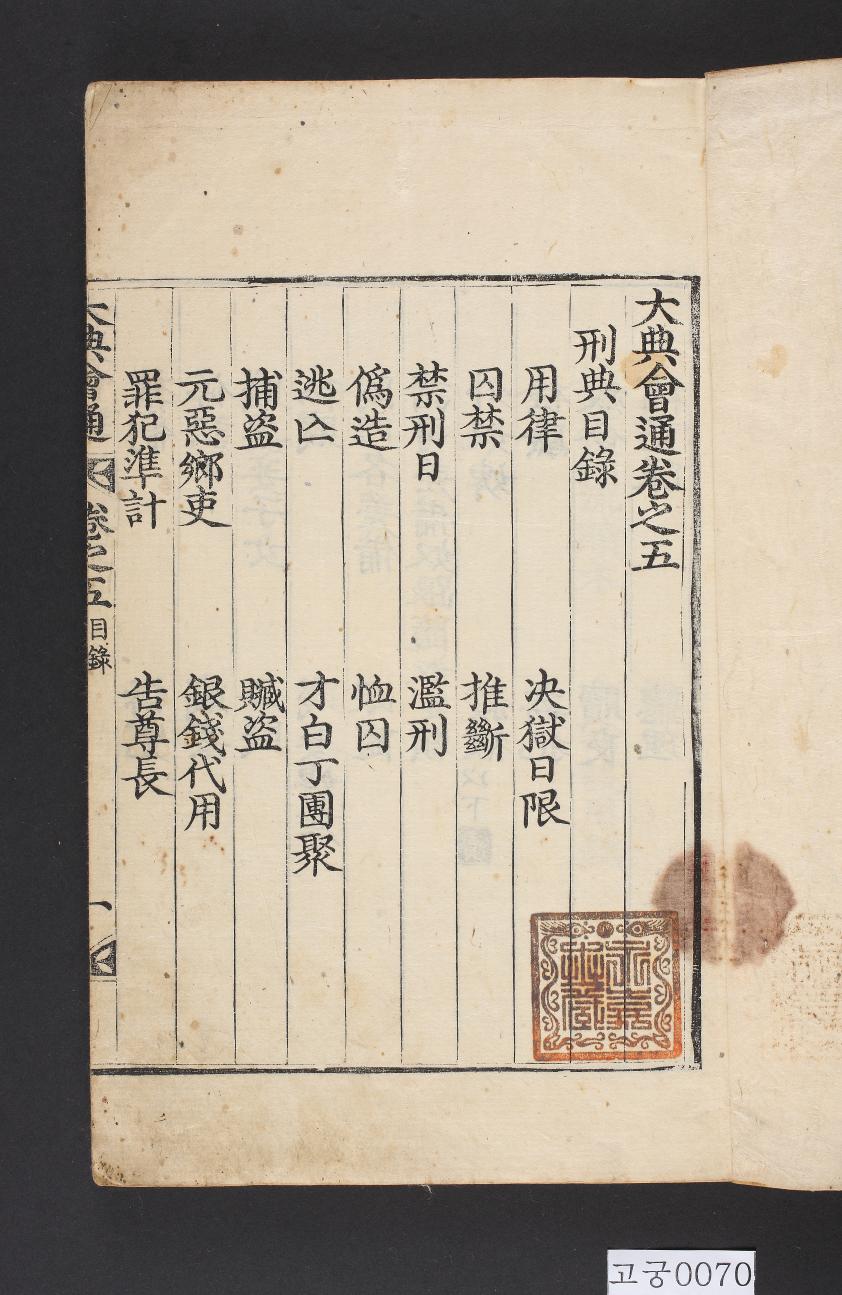 大典會通卷之五
刑典目錄
用律 決獄日限
囚禁 推斷
禁刑日 濫刑
僞造 恤囚
逃亡 才白丁團聚
捕盜 贓盜
元惡鄉吏 銀錢代用
罪犯準計 告尊長
大典會通 卷之五 目錄 一
고궁0070